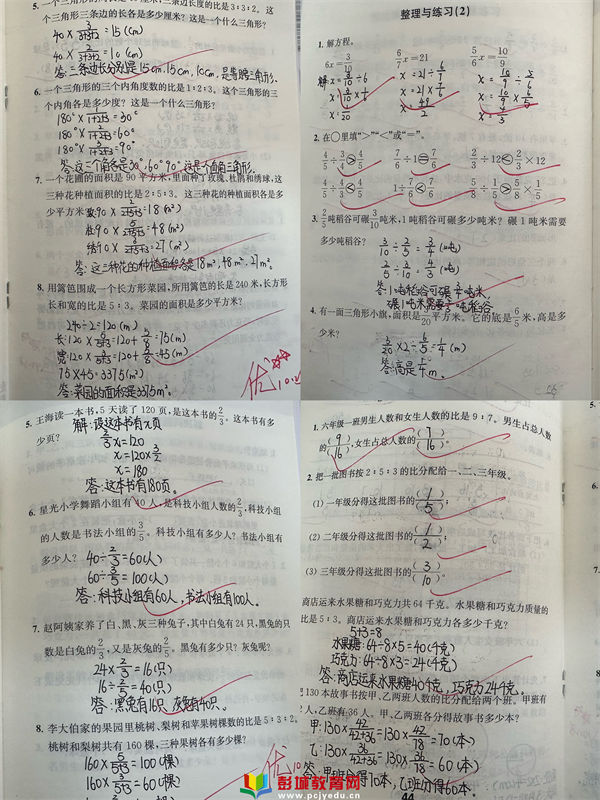 5. 一个三角形
三角形三条边的长各是多少厘米？这是一个什么三角形？
40×3/(3+3+2)=15(cm)
40×2/(3+3+2)=10(cm)
答:三条边长分别是15cm,15cm,10cm,是等腰三角形.
6. 一个三角形的三个内角度数的比是1∶2∶3。这个三角形的三
个内角各是多少度？这是一个什么三角形？
180°×1/(1+2+3)=30°
180°×2/(1+2+3)=60°
180°×3/(1+2+3)=90°
7. 一个花圃的面积是90平方米,里面种了玫瑰、杜鹃和绣球,这
三种花种植面积的比是2∶5∶3。这三种花的种植面积各是多
少平方米？
=18(m²)
=48(m²)
=27(m²)
答:这三种花的种植面积各是18m²,48m²,27m².
8. 用篱笆围成一个长方形菜园,所用篱笆的长是240米,长方形
长和宽的比是5∶3。菜园的面积是多少平方米？
240÷2=120(m)
长:120×5/(5+3)=120×5/8=75(m)
宽:120×3/(5+3)=120×3/8=45(m)
75×45=3375(m²)
答:菜园的面积是3375m².
优
整理与练习(2)
1. 解方程。
6x=3/10 6/7x=21 5/6x=10/9
解 x=3/10÷6 x=21÷6/7 x=10/9÷5/6
x=3/10×1/6 x=21×7/6 x=10/9×6/5
x=1/20 x=49/2 x=4/3
2. 在○里填“>”“<”或“=”。
3. 2/5吨稻谷可碾3/10吨米,1吨稻谷可碾多少吨米？碾1吨米需要
多少吨稻谷？
3/10÷2/5=3/4(吨)
2/5÷3/10=4/3(吨)
答:1吨稻谷可碾3/4吨米,
碾1吨米需要4/3吨稻谷
4. 有一面三角形小旗,面积是3/20平方米。它的底是6/5米,高是多
少米？
3/20×2÷6/5=1/4(m)
答:高是1/4m.
5. 王海读一本书,5天读了120页,是这本书的2/3。这本书有多
少页？
解:设这本书有x页
2/3x=120
x=120×3/2
x=180
答:这本书有180页。
6. 星光小学舞蹈小组有40人,是科技小组人数的2/3,科技小组
的人数是书法小组的3/5。科技小组有多少人？书法小组有
多少人？
40÷2/3=60(人)
60÷3/5=100(人)
答:科技小组有60人,书法小组有100人。
7. 赵阿姨家养了白、黑、灰三种兔子,其中白兔有24只,黑兔的只
数是白兔的2/3,又是灰兔的2/5。黑兔有多少只？灰兔呢？
24×2/3=16(只)
16÷2/5=40(只)
答:黑兔有16只,灰兔有40只。
8. 李大伯家的果园里桃树、梨树和苹果树棵数的比是5∶3∶2。
桃树和梨树共有160棵,三种果树各有多少棵？
160×5/(5+3)=100(棵)
160×3/(5+3)=60(棵)
优
1. 六年级一班男生人数和女生人数的比是9∶7。男生占总人数
的(9)/(16),女生占总人数的(7)/(16)。
2. 把一批图书按2∶5∶3的比分配给一、二、三年级。
(1) 一年级分得这批图书的(1)/(5);
(2) 二年级分得这批图书的(1)/(2);
(3) 三年级分得这批图书的(3)/(10)。
商店运来水果糖和巧克力共64千克。水果糖和巧克力质量的
比是5∶3。商店运来水果糖和巧克力各多少千克？
5+3=8
水果糖:64÷8×5=40(千克)
巧克力:64÷8×3=24(千克)
答:商店运来水果糖40千克,巧克力24千克。
130本故事书按甲、乙两班人数的比分配给两个班。甲班有
2人,乙班有36人。甲、乙两班各分得故事书多少本？
甲:130×42/(42+36)=130×42/78=70(本)
乙:130×36/(42+36)=130×36/78=60(本)
答:甲班分得70本,乙班分得60本.
44
彭城教育网
www.pcjyedu.cn